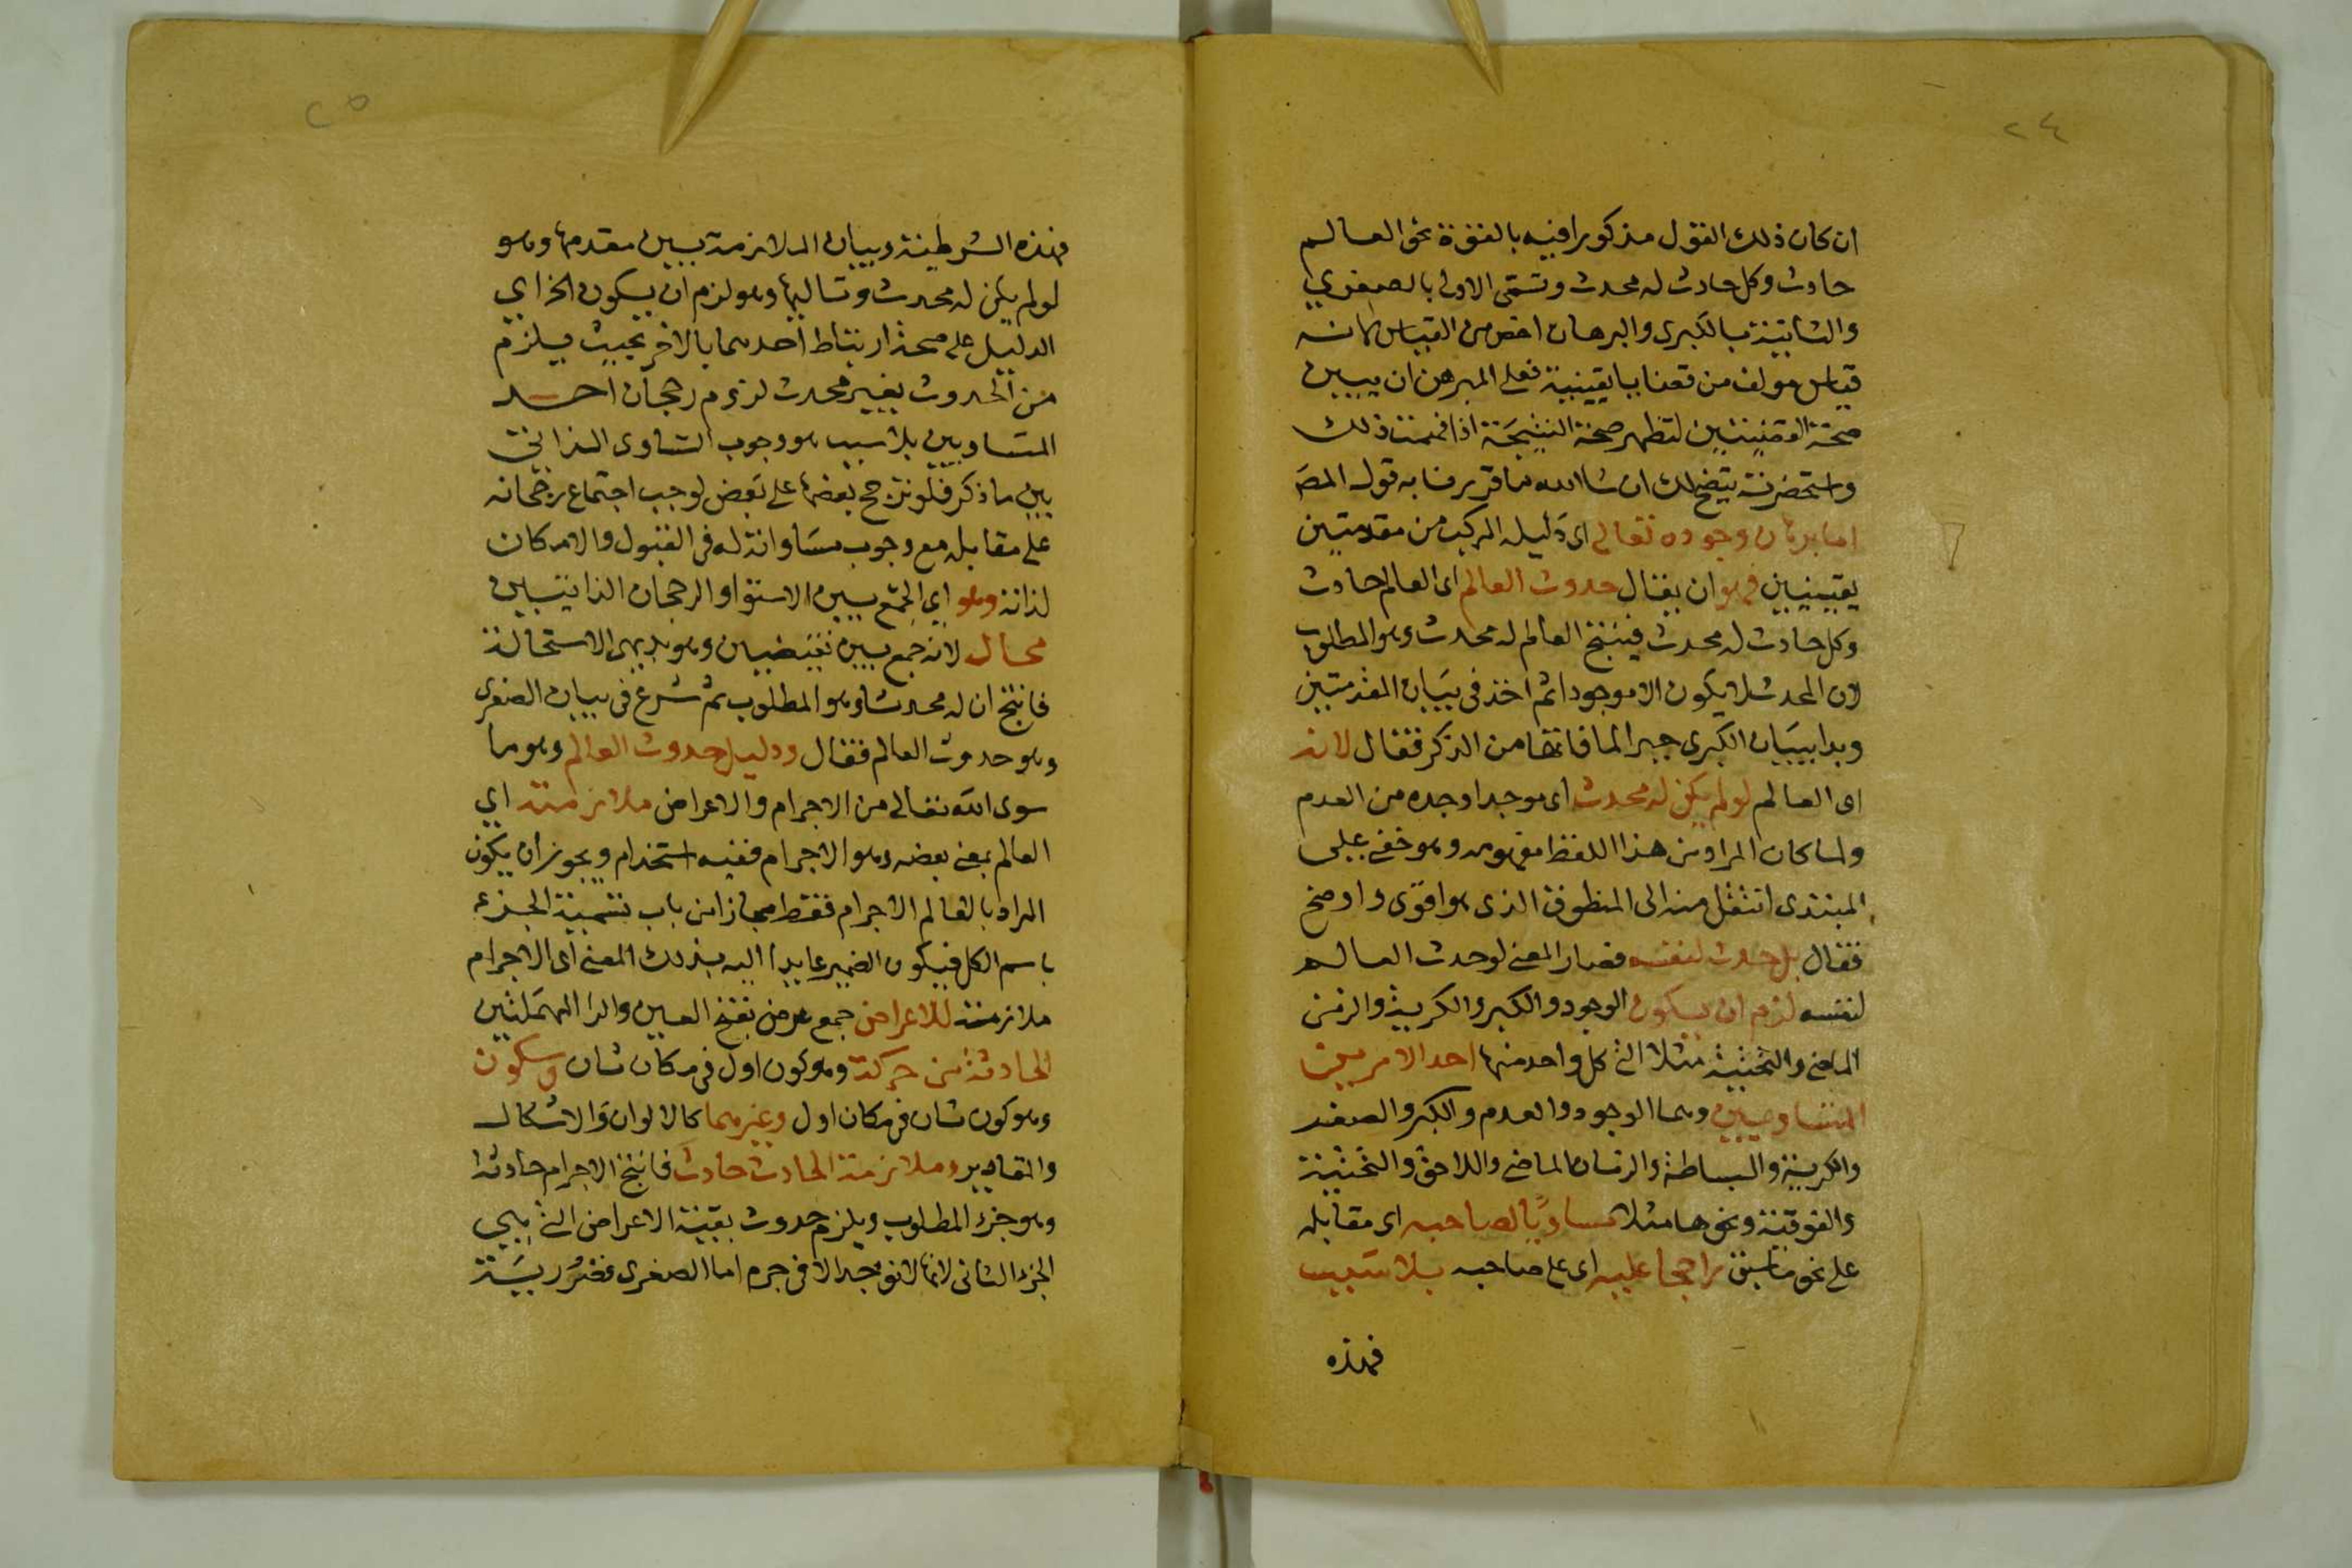 ٢٤
ان كان ذلك القول مذكورا فيه بالقوة نحو العالم
حادث وكل حادث له محدث وتسمى الاولى بالصغرى
والثانية بالكبرى والبرهان اخص من القياس لانه
قياس مولف من قضايا يقينية فعلى المبرهن ان يبين
صحة القضيتين لتظهر صحة النتيجة اذا فهمت ذلك
واستحضرته يتضح لك ان شا الله ما قررنا به قول المص
اما برهان وجوده تعالى اى دليله المركب من مقدمتين
يقينيتين فهو ان يقال حدوث العالم اى العالم حادث
وكل حادث له محدث فينتج العالم له محدث وهو المطلوب
لان المحدث لا يكون الا موجودا ثم اخذ فى بيان المقدمتين
وبدا ببيان الكبرى جبرا لما فاتها من الذكر فقال لانه
اى العالم لو لم يكن له محدث اى موجد اوجده من العدم
ولما كان المراد من هذا اللفظ مفهومه وهو خفى على
المبتدى انتقل منه الى المنطوق الذى هو اقوى واوضح
فقال بل حدث لنفسه فصار المعنى لو حدث العالم
لنفسه لزم ان يكون الوجود والكبر والكريّة والزمن
الماضى والتحتية مثلا التى كل واحد منها احد الامرين
المتساويين وهما الوجود والعدم والكبر والصغر
والكرية والبساطة والزمان الماضى واللاحق والتحتية
والفوقية ونحوها مثلا مساويا لصاحبه اى مقابله
على نحو ما سبق راجحا عليه اى على صاحبه بلا سبب
فهذه
٢٥
فهذه الشرطية وبيان الملازمة بين مقدمها وهو
لو لم يكن له محدث وتاليها وهو لزم ان يكون الخ اي
الدليل على صحة ارتباط احدهما بالاخر بحيث يلزم
من الحدوث بغير محدث لزوم رجحان احد
المتساويين بلا سبب هو وجوب التساوى الذاتى
بين ما ذكر فلو ترجح بعضها على بعض لوجب اجتماع رجحانه
على مقابله مع وجوب مساواته له فى القبول والامكان
لذاته وهو اي الجمع بين الاستوا والرجحان الذاتيين
محال لانه جمع بين نقيضين وهو بديهى الاستحالة
فانتج ان له محدثا وهو المطلوب ثم شرع فى بيان الصغرى
وهو حدوث العالم فقال ودليل حدوث العالم وهو ما
سوى الله تعالى من الاجرام والاعراض ملازمته اي
العالم بمعنى بعضه وهو الاجرام ففيه استخدام ويجوز ان يكون
المراد بالعالم الاجرام فقط مجازا من باب تسمية الجزء
باسم الكل فيكون الضمير عايدا اليه بذلك المعنى اى الاجرام
ملازمته للاعراض جمع عرض بفتح العين والرا المهملتين
الحادثة من حركة وهو كون اول فى مكان ثان وسكون
وهو كون ثان فى مكان اول وغيرهما كالالوان والاشكال
والمقادير وملازمة الحادث حادث فانتج الاجرام حادثة
وهو جزء المطلوب ويلزم حدوث بقية الاعراض التى هي
الجزء الثانى لانها لا توجد الا فى جرم اما الصغرى فضرورية